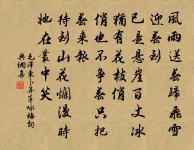 風雨送春歸飛雪
迎春到
已是懸崖百丈冰
猶有花枝俏
俏也不爭春只把
春來報
待到山花爛漫時
她在叢中笑
毛澤東卜算子咏梅詞